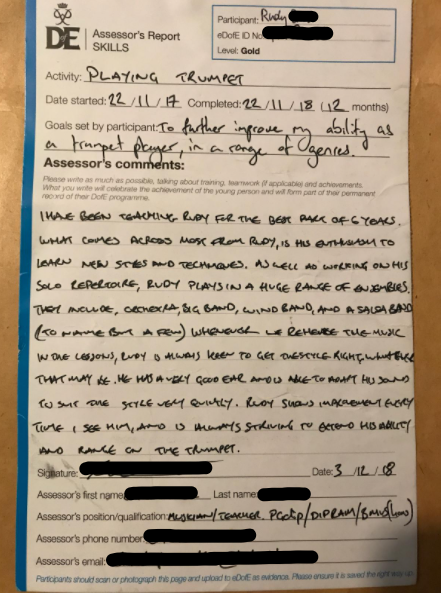 DofE
Assessor's Report
SKILLS
Participant: Rudy
eDofE ID No
Level: Gold
Activity: PLAYING TRUMPET
Date started: 22 / 11 / 17 Completed: 22 / 11 / 18 (12 months)
Goals set by participant: To further improve my ability as
a trumpet player, in a range of genres.
Assessor's comments:
Please write as much as possible, talking about training, teamwork (if applicable) and achievements.
What you write will celebrate the achievement of the young person and will form part of their permanent
record of their DofE programme.
I HAVE BEEN TEACHING RUDY FOR THE BEST PART OF 6 YEARS.
WHAT COMES ACROSS MOST FROM RUDY, IS HIS ENTHUSIASM TO
LEARN NEW STYLES AND TECHNIQUES. AS WELL AS WORKING ON HIS
SOLO REPERTOIRE, RUDY PLAYS IN A HUGE RANGE OF ENSEMBLES.
THEY INCLUDE, ORCHESTRA, BIG BAND, WIND BAND, AND A SALSA BAND
(TO NAME BUT A FEW) WHENEVER WE REHEARSE THE MUSIC
IN THE LESSONS, RUDY IS ALWAYS KEEN TO GET THE STYLE RIGHT, WHATEVER
THAT MAY BE. HE HAS A VERY GOOD EAR AND IS ABLE TO ADAPT HIS SOUND
TO SUIT THE STYLE VERY QUICKLY. RUDY SHOWS IMPROVEMENT EVERY
TIME I SEE HIM, AND IS ALWAYS STRIVING TO EXTEND HIS ABILITY
AND RANGE ON THE TRUMPET.
Signature: Date: 3 / 12 / 18
Assessor's first name: Last name:
Assessor's position/qualification: MUSICIAN/TEACHER. /DIPRAM/BMUS(HONS)
Assessor's phone number
Assessor's email:
Participants should scan or photograph this page and upload to eDofE as evidence. Please ensure it is saved the right way up.